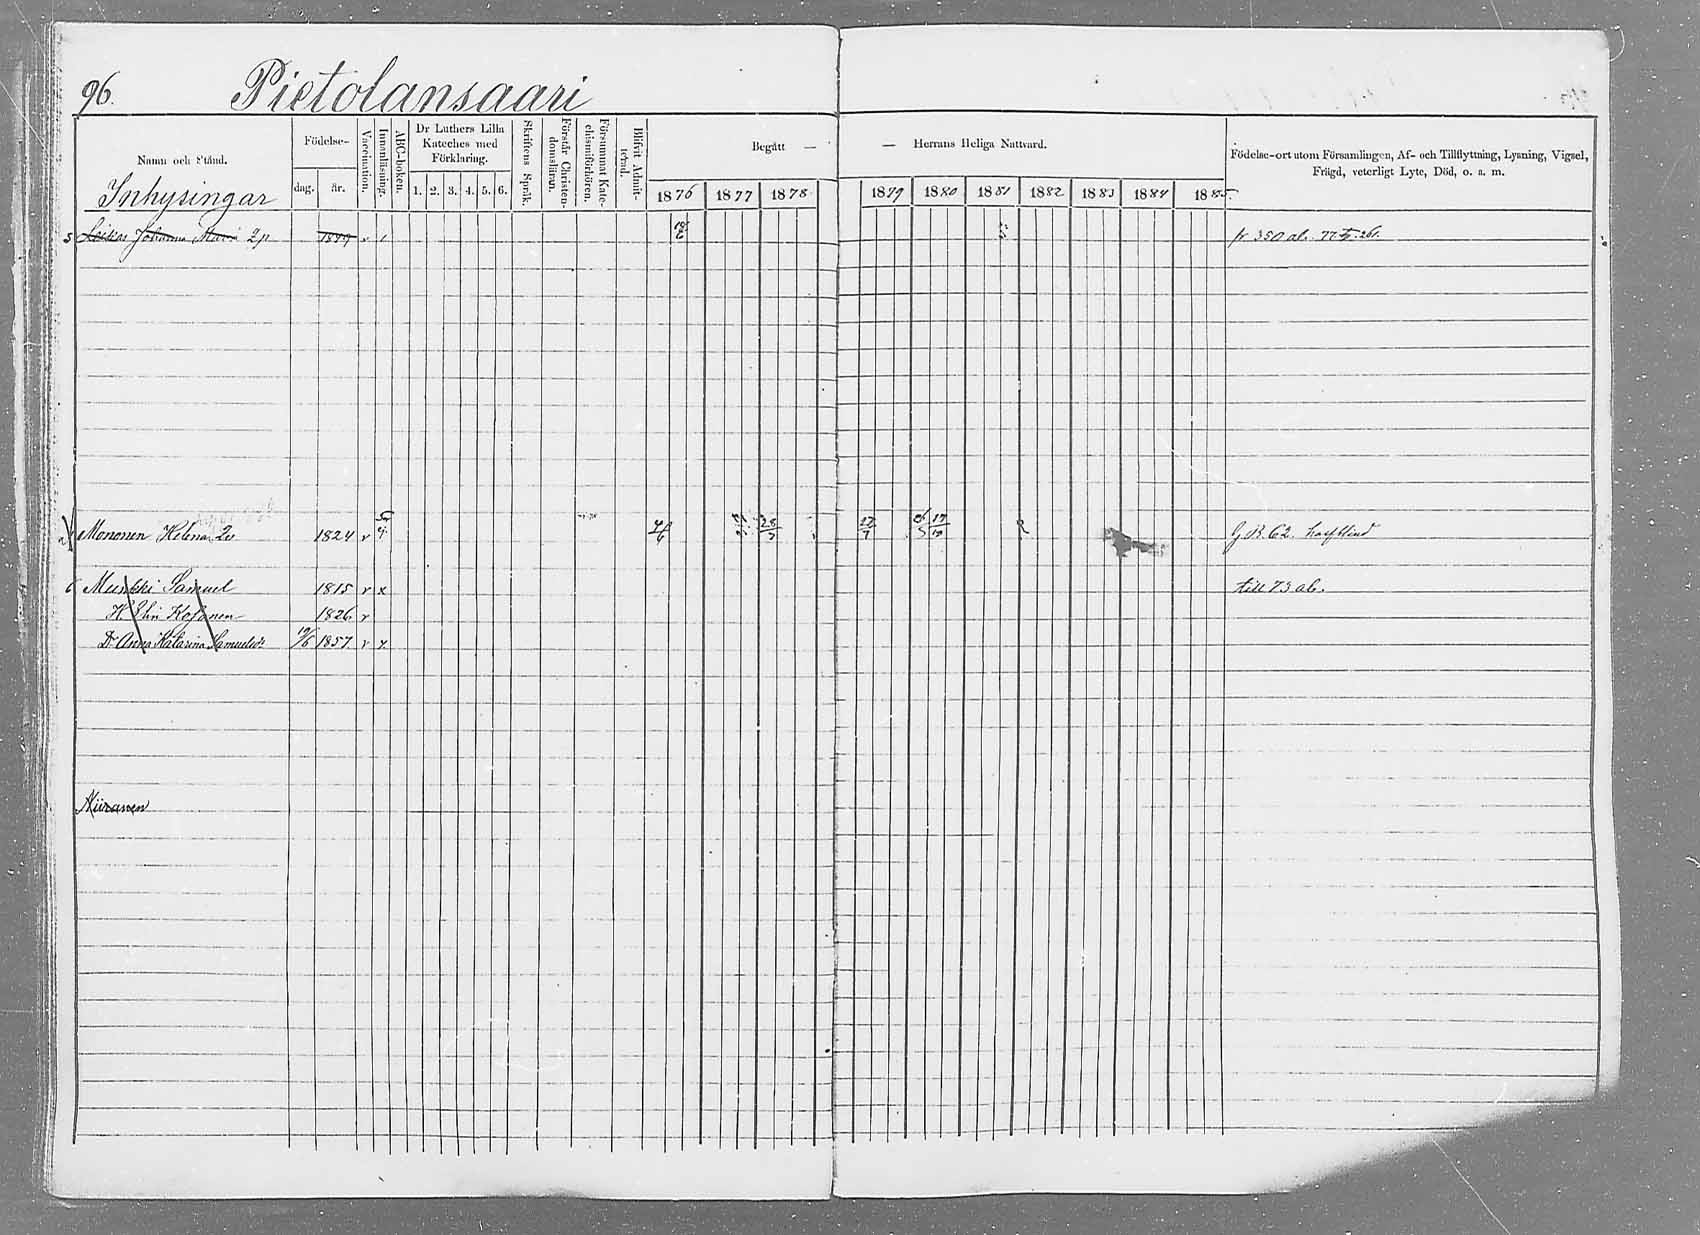 96. Pietolansaari
Namn och Stånd.
Inhysingar
Födelse-
dag. år.
Vaccination.
Innanläsning.
ABC-boken.
Dr Luthers Lilla Kateches med Förklaring.
1. 2. 3. 4. 5. 6.
Skriftens Språk.
Förstår Christendomsläran.
Försummat Katechismiförhören.
Blifvit Admitterad.
Begått — — Herrans Heliga Nattvard.
1876 1877 1878 1879 1880 1881 1882 1883 1884 1885.
Födelse-ort utom Församlingen, Af- och Tillflyttning, Lysning, Vigsel,
Frägd, veterligt Lyte, Död, o. s. m.
5 Johanna Maria 2p v fr 350 al.
Mononen Helena 1824 v 28/5 17/10 62. halfblind
6 Munkki Samuel 1815 v x till 73 al.
H. Elin Kojonen 1826 v
Dr Anna Katarina Samuelsdr 1857 v x
Niiranen